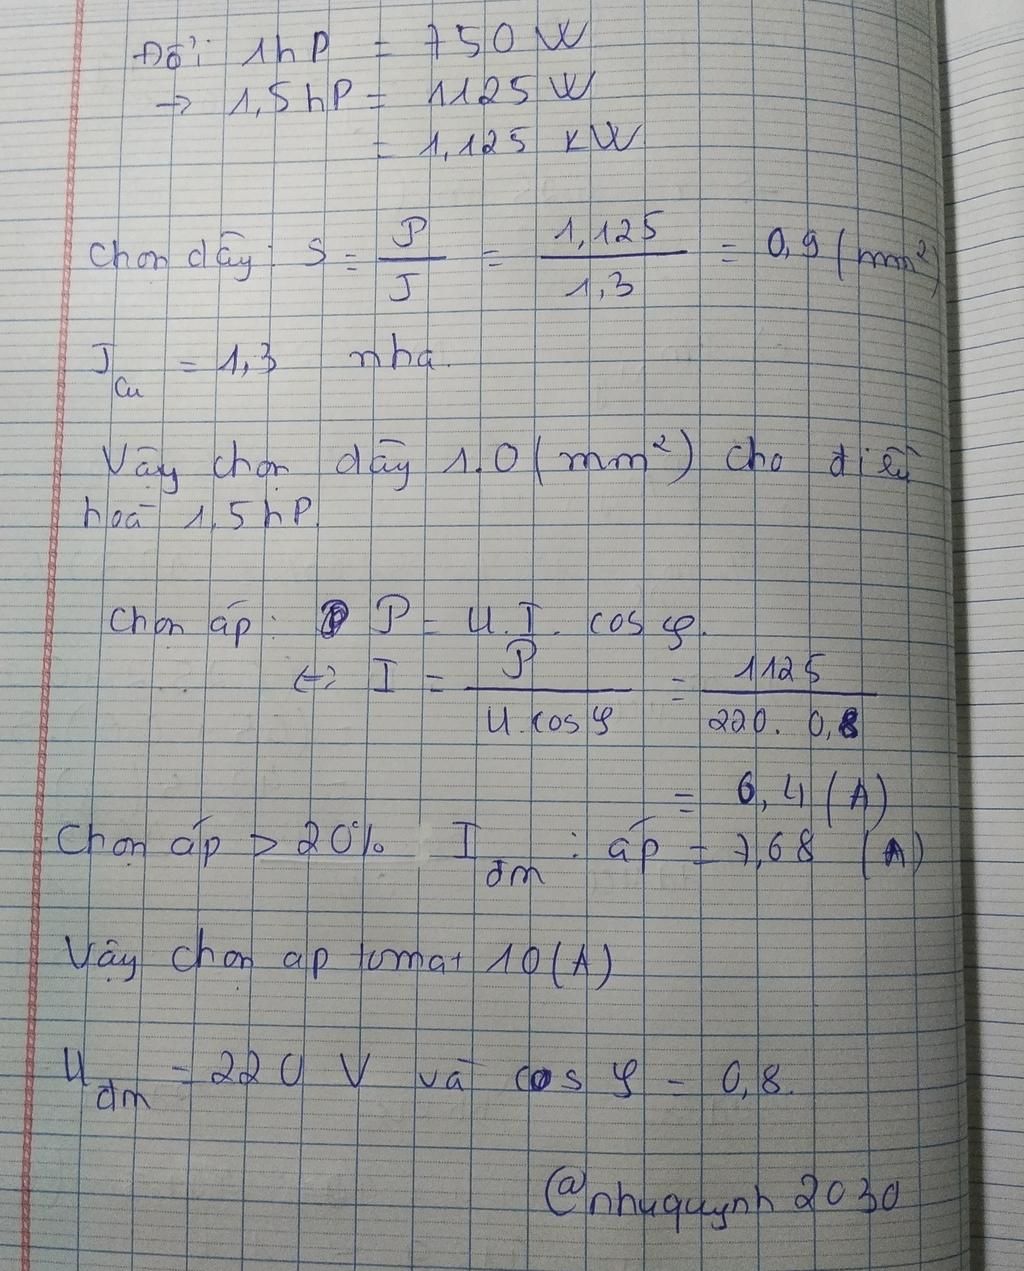 Đổi: 1hP = 750 W
→ 1,5 hP = 1125 W
= 1,125 KW
Chọn dây: S = P / J = 1,125 / 1,3 = 0,9 (mm²)
J Cu = 1,3 nha.
Vậy chọn dây 1.0 (mm²) cho điều
hoà 1,5 hP
Chọn áp: P = U.I. cos φ.
<-> I = P / U.cos φ = 1125 / 220. 0,8
= 6,4 (A)
Chọn áp > 20% I đm : áp = 7,68 (A)
Vậy chọn áp tomat 10 (A)
U đm = 220 V và cos φ = 0,8.
@nhuquynh 2030